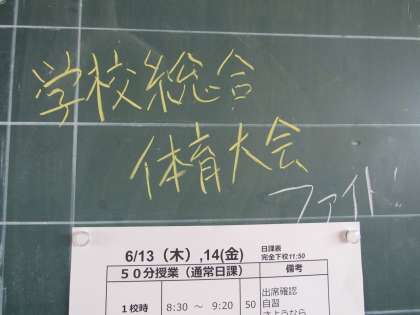 学校総合
体育大会
ファイト!
6/13(木),14(金) 日課表
完全下校11:50
50分授業(通常日課) 備考
1校時 8:30 ～ 9:20 50 出席確認
自習
さようなら